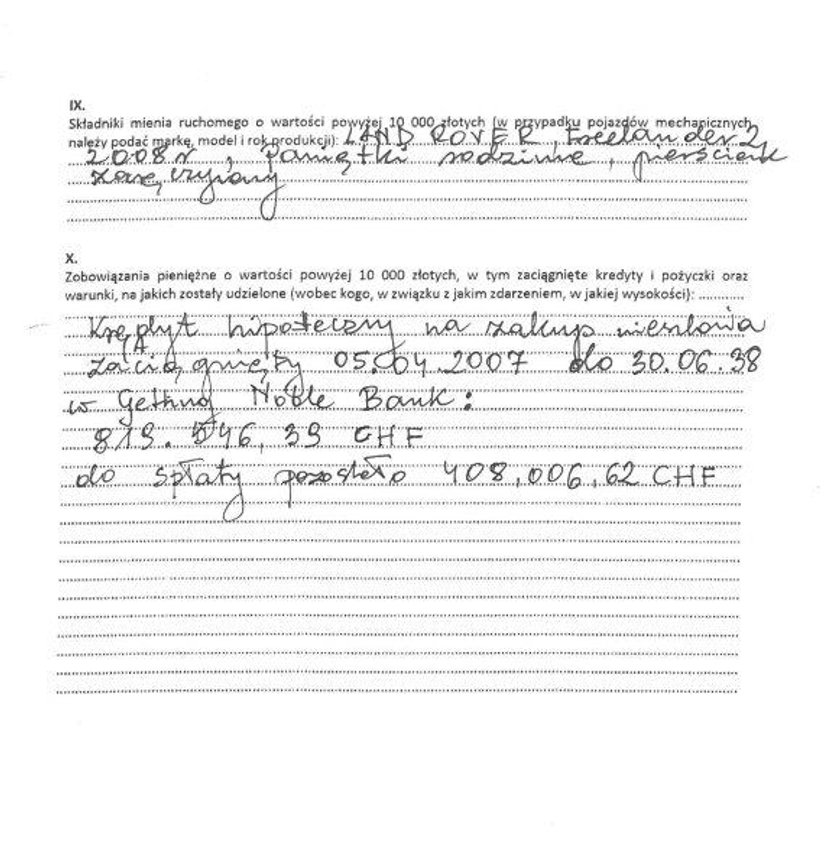 IX.
Składniki mienia ruchomego o wartości powyżej 10 000 złotych (w przypadku pojazdów mechanicznych
należy podać markę, model i rok produkcji): LAND ROVER, Freelander 2,
2008 r, pamiątki rodzinne, pierścionek
zaręczynowy
X.
Zobowiązania pieniężne o wartości powyżej 10 000 złotych, w tym zaciągnięte kredyty i pożyczki oraz
warunki, na jakich zostały udzielone (wobec kogo, w związku z jakim zdarzeniem, w jakiej wysokości): ............
hipoteczny na zakup mieszkania
zaciągnięty 05.04.2007 do 30.06.38
w Getinoj Noble Bank:
CHF
do spłaty pozostało 408,006,62 CHF